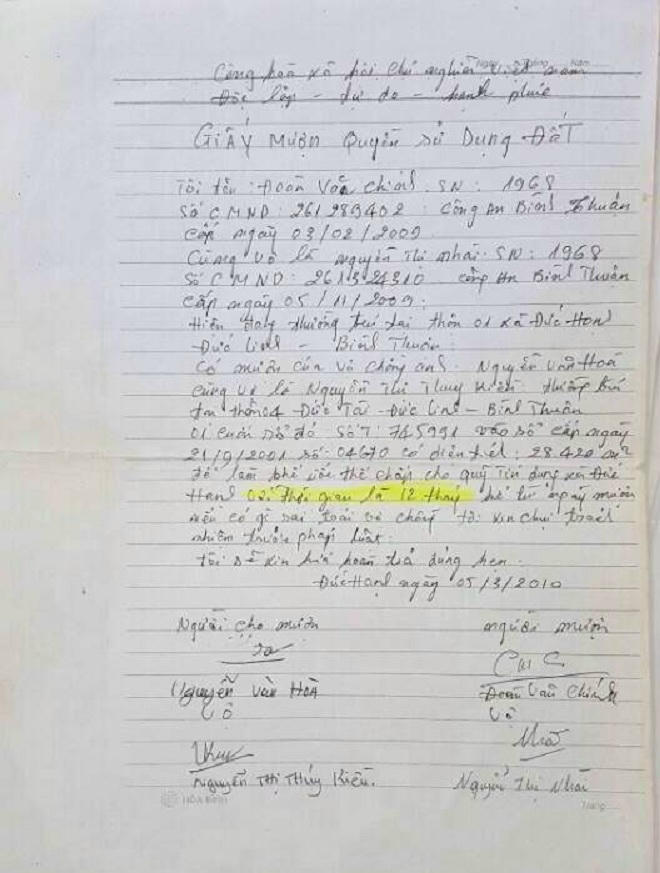 Ngày Tháng Năm
Cộng hoà xã hội chủ nghĩa việt nam
Độc lập - tự do - hạnh phúc
GIẤY MƯỢN QUYỀN SỬ DỤNG ĐẤT
Tôi tên: Đoàn Văn Chính. SN: 1968
Số CMND: 261289402 Công An Bình Thuận
cấp ngày 03/02/2009
Cùng vợ là Nguyễn Thị Nhái. SN: 1968
Số CMND: 261324310 công An Bình Thuận
cấp ngày 05/11/2009.
Hiện đang thường trú tại thôn 01 xã Đức Hạnh
Đức Linh - Bình Thuận.
Có mượn của vợ chồng anh. Nguyễn Văn Hoà
cùng vợ là Nguyễn Thị Thuý Kiều thường trú
tại thôn 04 - Đức Tài - Đức Linh - Bình Thuận
01 cuốn sổ đỏ số T: 745991 vào sổ cấp ngày
21/9/2001 số: 04670 có diện tích: 28.420 m2
để làm thế chấp cho quỹ Tín dụng xã Đức
Hạnh thời gian là 12 tháng kể từ ngày mượn
nếu có gì sai trái vợ chồng tôi xin chịu trách
nhiệm trước pháp luật.
tôi sẽ xin hứa hoàn trả đúng hẹn.
Đức Hạnh ngày 05/3/2010
Người cho mượn người mượn
Nguyễn Văn Hoà Đoàn Văn Chính
Vợ Vợ
Nguyễn Thị Thúy Kiều. Nguyễn Thị Nhái
HÒA BÌNH Trang